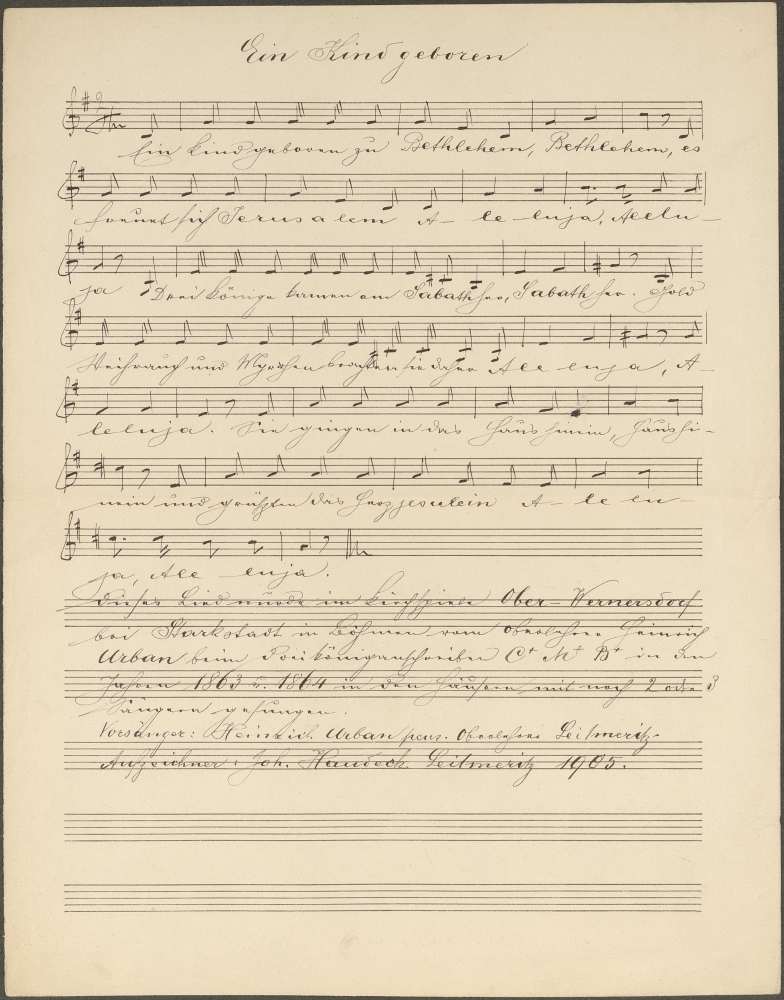 Ein Kind geboren
Ein Kind geboren zu Bethlehem, Bethlehem, es
freuet sich Jerusalem A- le -luja, Allelu-
ja Drei Könige kamen am Sabath her, Sabath her. Gold
Weihrauch und Myrrhen brachten sie daher Alleluja, A-
leluja. Sie gingen in das Haus hinein, Haus hi-
nein und grüßten das Herzjesulein A- le lu-
ja, Alle -luja.
Dieses Lied wurde im Kirchspiele Ober-Wernersdorf
bei Starkstadt in Böhmen vom Oberlehrer Heinrich
Urban beim Dreikönigsanschreiben C+ M+ B+ in den
Jahren 1863 u. 1864 in den Häusern mit noch 2 oder 3
Sängern gesungen.
Vorsänger: Heinrich Urban pens. Oberlehrer Leitmeritz.
Aufzeichner: Joh. Haudeck. Leitmeritz 1905.